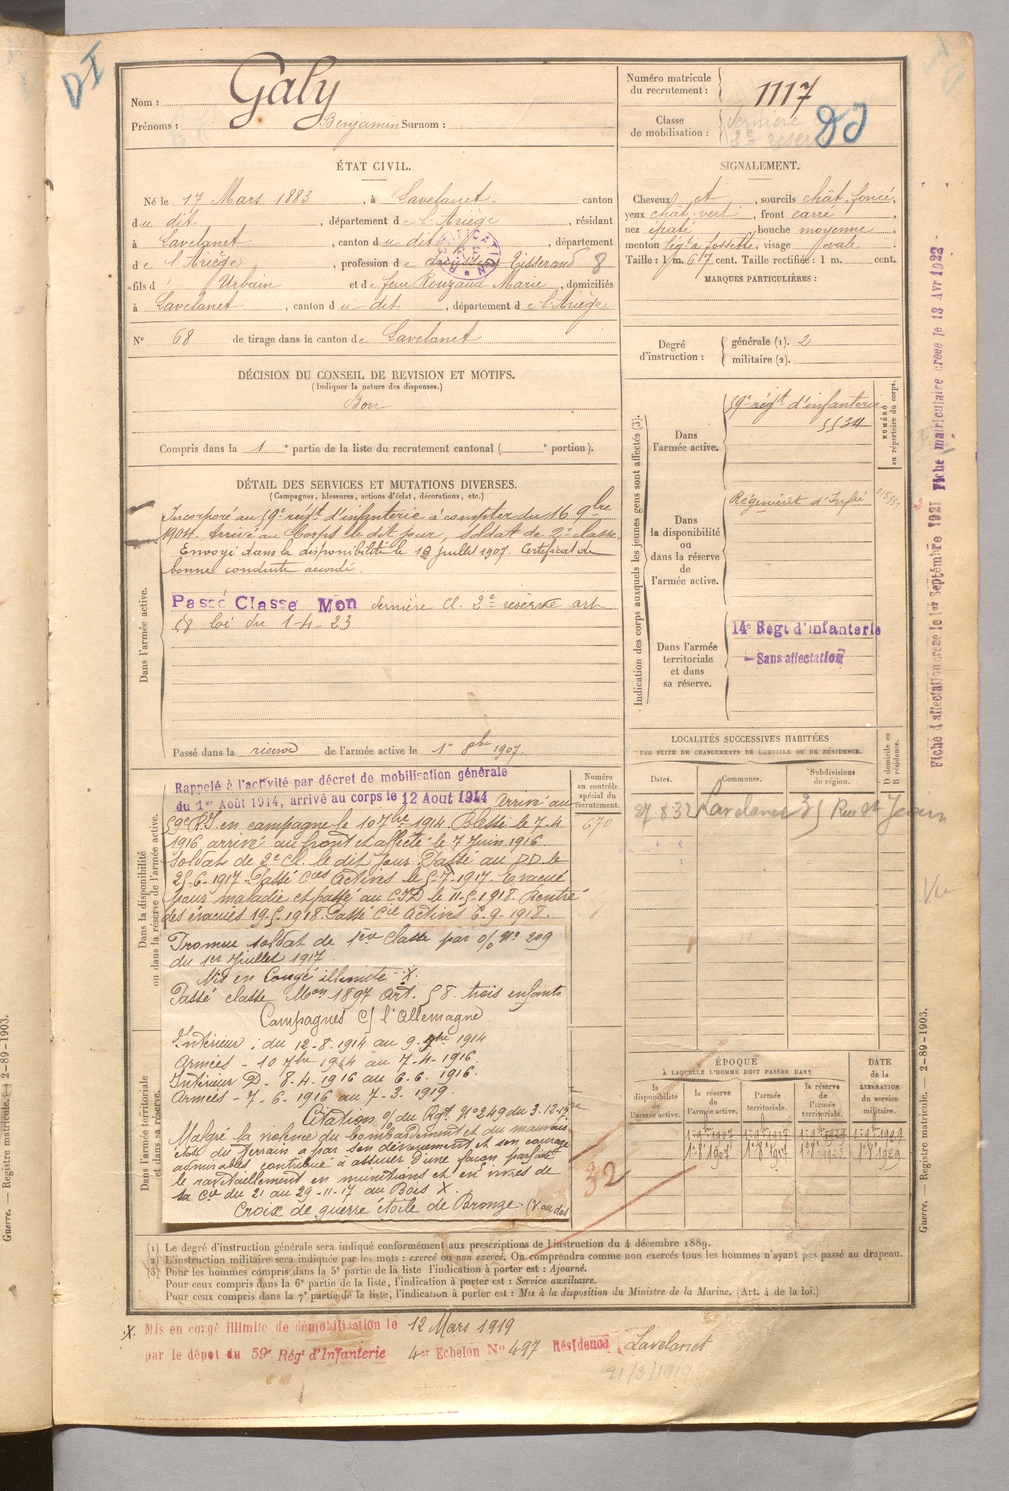 DI
Nom : Galy
Prénoms : Benjamin Surnom :
Numéro matricule du recrutement : 1117
Classe de mobilisation : dernière 2e réserve
DI
ÉTAT CIVIL.
Né le 17 Mars 1883, à Lavelanet canton
du dit, département de l'Ariège, résidant
à Lavelanet, canton du dit, département
de l'Ariège, profession de Tisserand 8
fils d' Urbain et de feue Rouzaud Marie, domiciliés
à Lavelanet, canton du dit, département de l'Ariège
N° 68 de tirage dans le canton de Lavelanet
SIGNALEMENT.
Cheveux et, sourcils chât. foncé,
yeux chât. vert, front carré,
nez épaté, bouche moyenne,
menton lég. à fossette, visage ovale
Taille : 1 m. 617 cent. Taille rectifiée : 1 m. cent.
MARQUES PARTICULIÈRES :
Degré d'instruction : générale (1). 2
militaire (2).
DÉCISION DU CONSEIL DE REVISION ET MOTIFS.
(Indiquer la nature des dispenses.)
Bon
Compris dans la 1e partie de la liste du recrutement cantonal ( e portion).
DÉTAIL DES SERVICES ET MUTATIONS DIVERSES.
(Campagnes, blessures, actions d'éclat, décorations, etc.)
Dans l'armée active.
Incorporé au 59e régt d'infanterie à compter du 16 9bre
1904. Arrivé au Corps le dit jour, Soldat de 2e classe.
Envoyé dans la disponibilité le 12 juillet 1907. Certificat de
bonne conduite accordé.
Passé Classe Mon dernière cl. 2e réserve art
58 loi du 1-4-23
Passé dans la réserve de l'armée active le 1er 8bre 1907.
Indication des corps auxquels les jeunes gens sont affectés (3).
NUMÉRO au répertoire du corps.
Dans l'armée active.
59e régt d'infanterie
5534
Dans la disponibilité ou dans la réserve de l'armée active.
Régiment d'Infie
Dans l'armée territoriale et dans sa réserve.
14e Régt d'Infanterie
Sans affectation
Fiche d'affectation créée le 1er Septembre 1921 Fiche matriculaire créée le 13 Avr 1922
Dans la disponibilité ou dans la réserve de l'armée active.
Numéro au contrôle spécial du recrutement.
670
Rappelé à l'activité par décret de mobilisation générale
du 1er Août 1914, arrivé au corps le 12 Aout 1914 Arrivé au
59e RI en campagne le 10 7bre 1914 Blessé le 7-4
1916 arrivé au front et affecté le 7 Juin 1916
Soldat de 2e Cl. le dit jour Passé au DD le
25-6-1917 Passé Cies Actives le 5-7-1917 Evacué
pour maladie et passé au CID le 11-5-1918 Rentré
des évacués 19-5-1918 Passé Cie Actives 6-9-1918.
Promu soldat de 1ère Classe par o/ N° 209
du 1er Juillet 1917
Mis en Congé illimité .X.
Passé classe Mon 1897 Art. 58. trois enfants
Dans l'armée territoriale et dans sa réserve.
Campagnes c/ l'Allemagne
Intérieur : du 12-8-1914 au 9-7bre 1914
Armées - 10 7bre 1914 au 7-4-1916.
Intérieur D. 8-4-1916 au 6-6-1916.
Armées - 7-6-1916 au 7-3-1919.
Citation o/ du Rgt N° 249 du 3-12-17
Malgré la violence du bombardement et du mauvais
état du terrain a par son dévouement et son courage
admirables contribué à assurer d'une façon parfaite
le ravitaillement en munitions et en vivres de
sa Cie du 21 au 29-11-17 au Bois X.
Croix de guerre étoile de Bronze
32
LOCALITÉS SUCCESSIVES HABITÉES
PAR SUITE DE CHANGEMENTS DE DOMICILE OU DE RÉSIDENCE.
Dates. Communes. Subdivisions de région. D domicile ou R résidence.
27 8 32 Lavelanet 35 Rue St Jean
ÉPOQUE
À LAQUELLE L'HOMME DOIT PASSER DANS
la disponibilité de l'armée active. la réserve de l'armée active. l'armée territoriale. la réserve de l'armée territoriale. DATE de la LIBÉRATION du service militaire.
(1) Le degré d'instruction générale sera indiqué conformément aux prescriptions de l'instruction du 4 décembre 1889.
(2) L'instruction militaire sera indiquée par les mots : exercé ou non exercé. On comprendra comme non exercés tous les hommes n'ayant pas passé au drapeau.
(3) Pour les hommes compris dans la 5e partie de la liste l'indication à porter est : Ajourné.
Pour ceux compris dans la 6e partie de la liste, l'indication à porter est : Service auxiliaire.
Pour ceux compris dans la 7e partie de la liste, l'indication à porter est : Mis à la disposition du Ministre de la Marine. (Art. 4 de la loi.)
.X. Mis en congé illimité de démobilisation le 12 Mars 1919
par le dépôt du 59e Régt d'Infanterie 4er Echelon N° 497 Résidence Lavelanet
21/3/1919
Guerre. — Registre matricule. — 2-89-1903.
Guerre. — Registre matricule. — 2-89-1903.